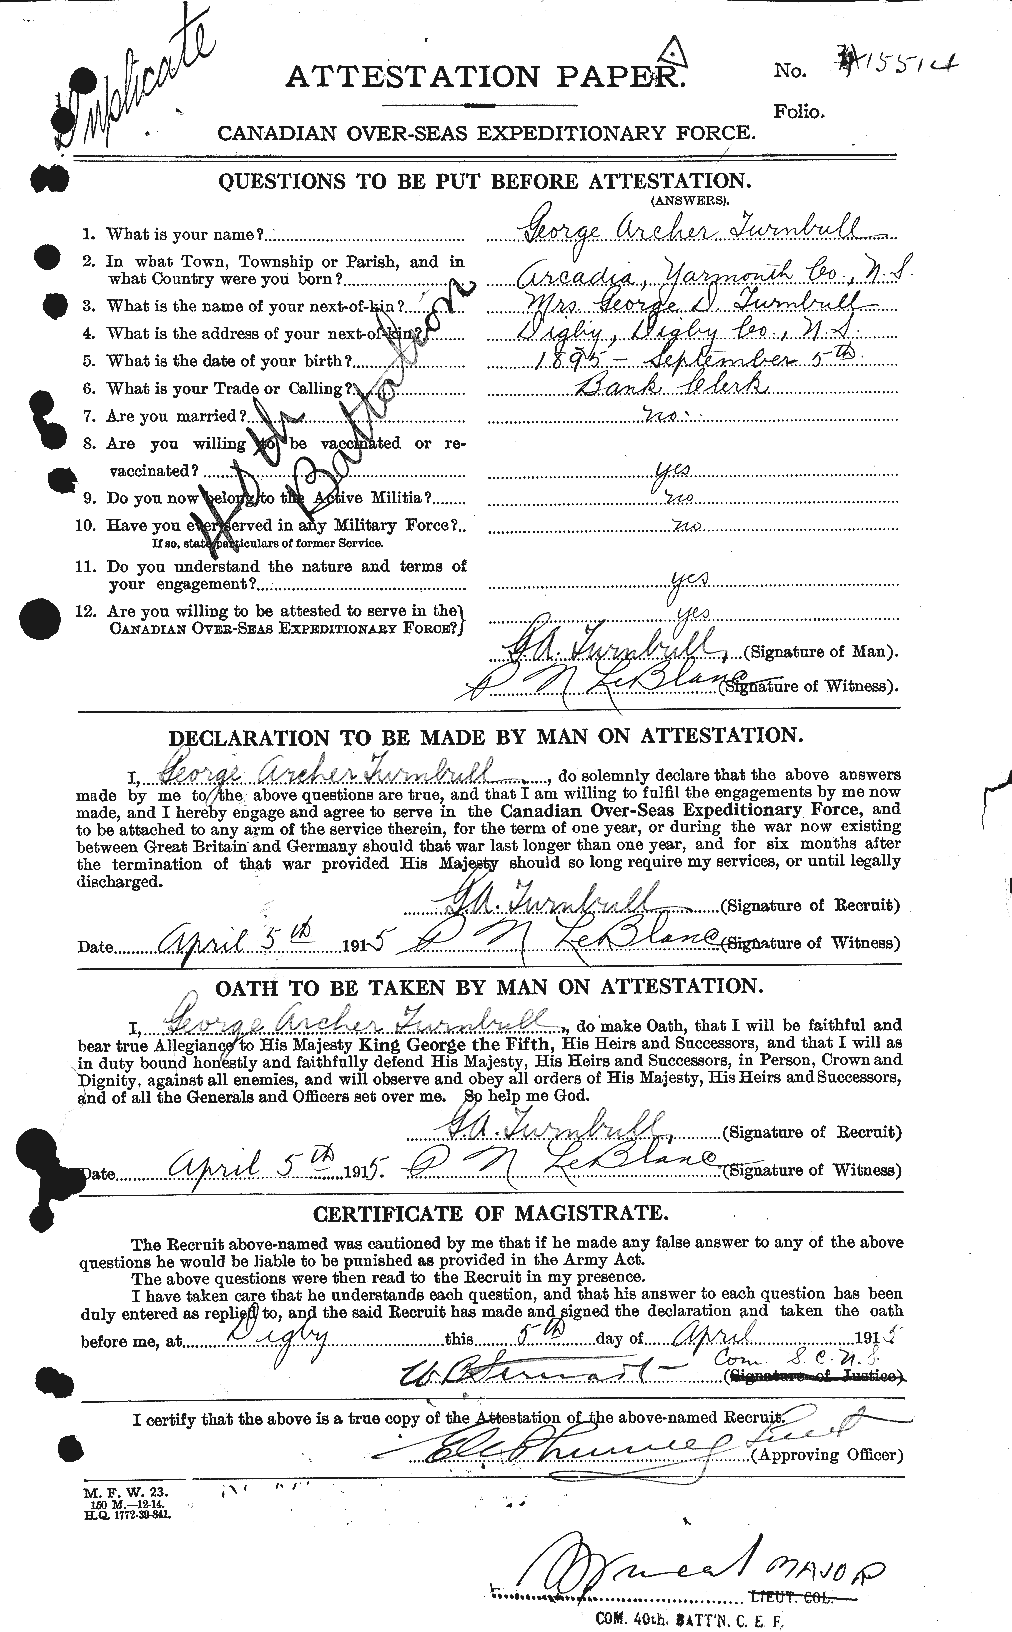 Duplicate
ATTESTATION PAPER.
No. 415514
Folio.
CANADIAN OVER-SEAS EXPEDITIONARY FORCE.
QUESTIONS TO BE PUT BEFORE ATTESTATION.
(ANSWERS).
1. What is your name? George Archer Turnbull
2. In what Town, Township or Parish, and in
what Country were you born? Arcadia, Yarmouth Co., N.S.
3. What is the name of your next-of-kin? Mrs. George D. Turnbull
4. What is the address of your next-of-kin? Digby, Digby Co., N.S.
5. What is the date of your birth? 1895 - September 5th
6. What is your Trade or Calling? Bank Clerk
7. Are you married? no.
8. Are you willing to be vaccinated or re-
vaccinated? yes
9. Do you now belong to the Active Militia? no
10. Have you ever served in any Military Force? no
If so, state particulars of former Service.
11. Do you understand the nature and terms of
your engagement? yes
12. Are you willing to be attested to serve in the
CANADIAN OVER-SEAS EXPEDITIONARY FORCE? yes
40th Battalion
G.A. Turnbull, (Signature of Man).
P N LeBlanc (Signature of Witness).
DECLARATION TO BE MADE BY MAN ON ATTESTATION.
I, George Archer Turnbull, do solemnly declare that the above answers
made by me to the above questions are true, and that I am willing to fulfil the engagements by me now
made, and I hereby engage and agree to serve in the Canadian Over-Seas Expeditionary Force, and
to be attached to any arm of the service therein, for the term of one year, or during the war now existing
between Great Britain and Germany should that war last longer than one year, and for six months after
the termination of that war provided His Majesty should so long require my services, or until legally
discharged.
G.A. Turnbull (Signature of Recruit)
Date April 5th 1915 P N LeBlanc (Signature of Witness)
OATH TO BE TAKEN BY MAN ON ATTESTATION.
I, George Archer Turnbull, do make Oath, that I will be faithful and
bear true Allegiance to His Majesty King George the Fifth, His Heirs and Successors, and that I will as
in duty bound honestly and faithfully defend His Majesty, His Heirs and Successors, in Person, Crown and
Dignity, against all enemies, and will observe and obey all orders of His Majesty, His Heirs and Successors,
and of all the Generals and Officers set over me. So help me God.
G.A. Turnbull, (Signature of Recruit)
Date April 5th 1915. P N LeBlanc (Signature of Witness)
CERTIFICATE OF MAGISTRATE.
The Recruit above-named was cautioned by me that if he made any false answer to any of the above
questions he would be liable to be punished as provided in the Army Act.
The above questions were then read to the Recruit in my presence.
I have taken care that he understands each question, and that his answer to each question has been
duly entered as replied to, and the said Recruit has made and signed the declaration and taken the oath
before me, at Digby this 5th day of April 1915
Com. S.C.N.S.
(Signature of Justice)
I certify that the above is a true copy of the Attestation of the above-named Recruit.
(Approving Officer)
M. F. W. 23.
150 M.—12-14.
H.Q. 1772-39-841.
MAJOR
LIEUT. COL.
COM. 40th. BATT'N. C. E. F.